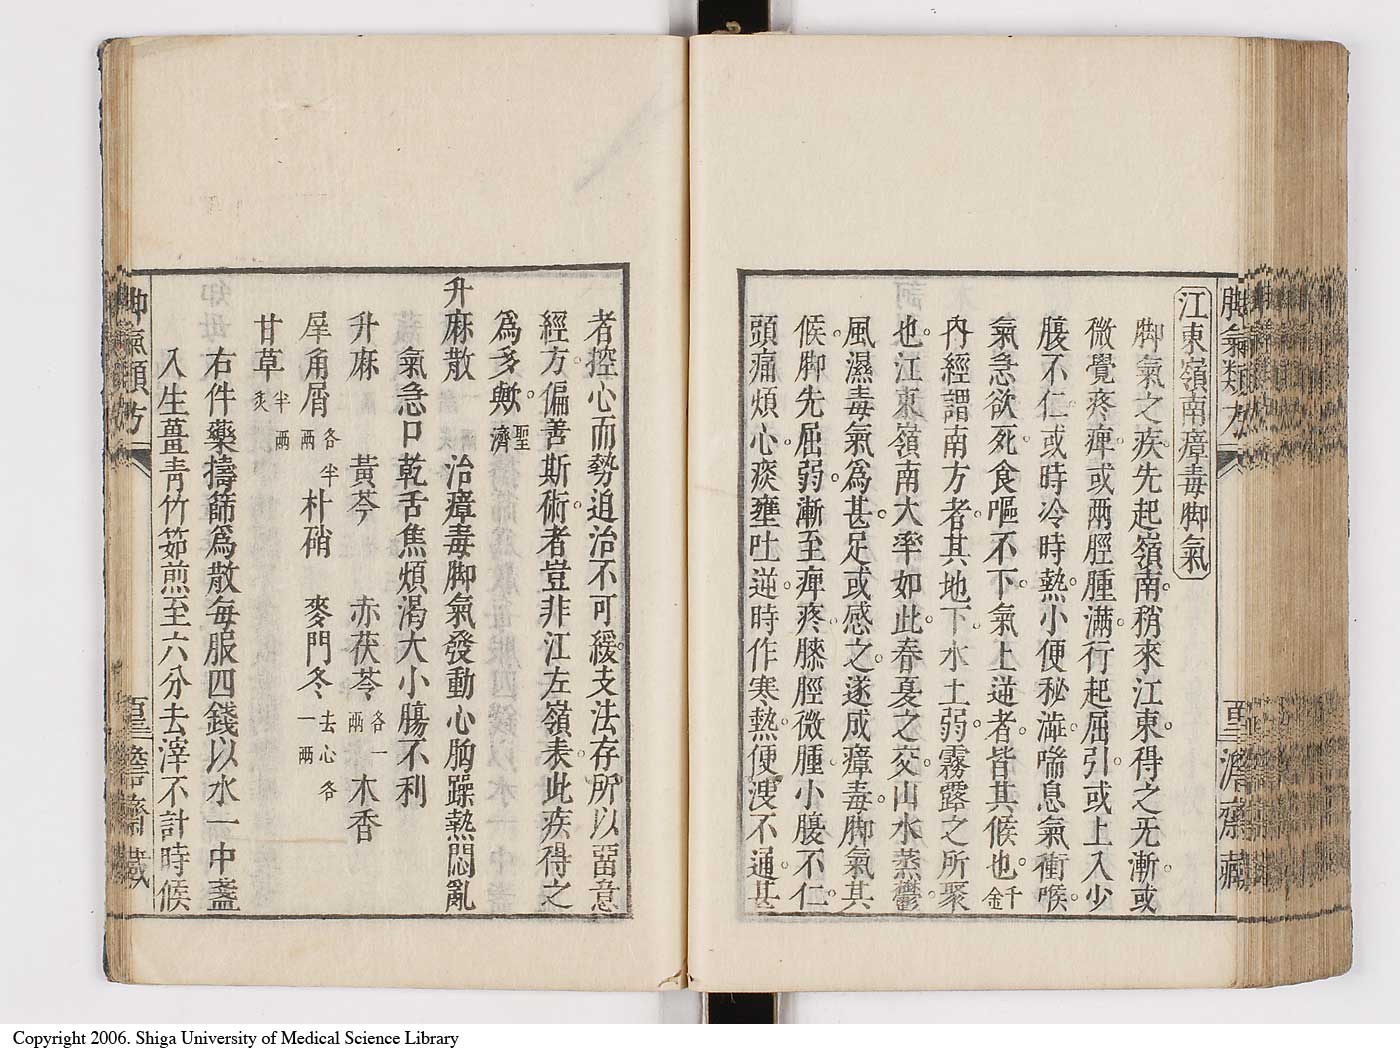 脚氣類方
聖濟齋藏
江東嶺南瘴毒脚氣
脚氣之疾先起嶺南稍來江東得之无漸或
微覺疼痺或兩脛腫滿行起屈引或上入少
腹不仁或時冷時熱小便秘澁喘息氣衝喉
氣急欲死食嘔不下氣上逆者皆其候也千金
内經謂南方者其地下水土弱霧露之所聚
也江東嶺南大率如此春夏之交山水蒸鬱
風濕毒氣爲甚足或感之遂成瘴毒脚氣其
候脚先屈弱漸至痺疼膝脛微腫小腹不仁
頭痛煩心痰壅吐逆時作寒熱便溲不通甚
者控心而勢迫治不可緩支法存所以留意
經方偏善斯術者豈非江左嶺表此疾得之
爲多歟聖濟
升麻散 治瘴毒脚氣發動心胸躁熱悶亂
氣急口乾舌焦煩渴大小腸不利
升麻 黃芩 赤茯苓各一兩 木香
犀角屑各半兩 朴硝 麥門冬去心各一兩
甘草半兩炙
右件藥擣篩爲散每服四錢以水一中盞
入生薑青竹茹煎至六分去滓不計時候
脚氣類方
聖濟齋藏
Copyright 2006. Shiga University of Medical Science Library